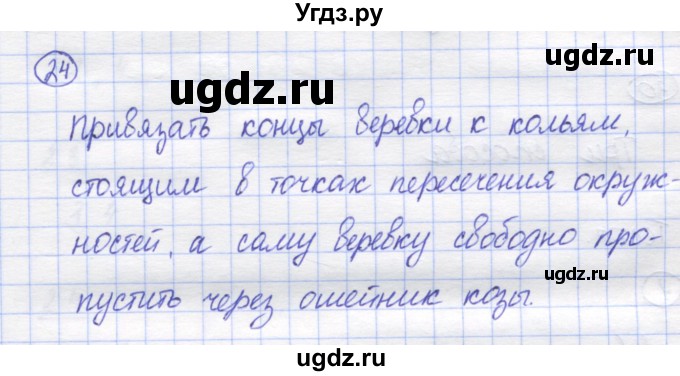 Угдз.ру
24
ugdz.ru
ugdz.ru
Привязать концы веревки к кольям,
стоящим в точках пересечения окруж-
ugdz.ru
ностей, а саму веревку свободно про-
ugdz.ru
пустить через ошейник козы.
ugdz.ru